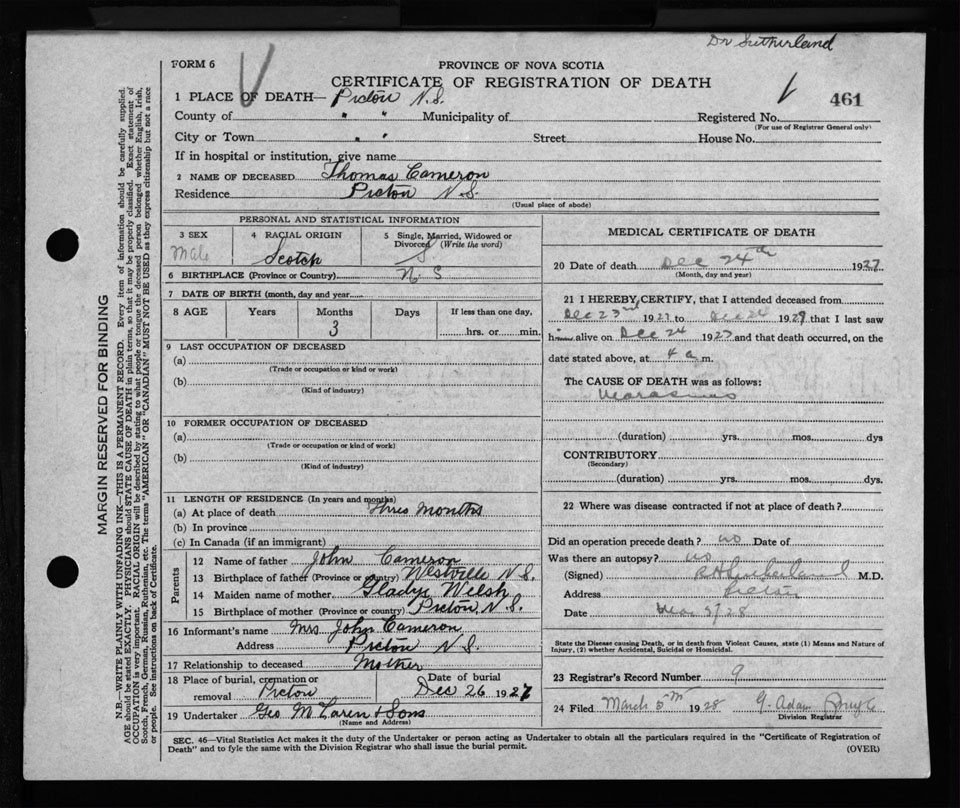 Dr Sutherland
FORM 6
PROVINCE OF NOVA SCOTIA
CERTIFICATE OF REGISTRATION OF DEATH
461
1 PLACE OF DEATH— Pictou N.S.
County of " " Municipality of Registered No.
(For use of Registrar General only)
City or Town " " Street House No.
If in hospital or institution, give name
2 NAME OF DECEASED Thomas Cameron
Residence Pictou N.S.
(Usual place of abode)
PERSONAL AND STATISTICAL INFORMATION
3 SEX Male
4 RACIAL ORIGIN Scotch
5 Single, Married, Widowed or Divorced (Write the word) S.
6 BIRTHPLACE (Province or Country) N S
7 DATE OF BIRTH (month, day and year)
8 AGE Years Months Days If less than one day,
3 hrs. or min.
9 LAST OCCUPATION OF DECEASED
(a)
(Trade or occupation or kind or work)
(b)
(Kind of industry)
10 FORMER OCCUPATION OF DECEASED
(a)
(Trade or occupation or kind of work)
(b)
(Kind of industry)
11 LENGTH OF RESIDENCE (In years and months)
(a) At place of death Three Months
(b) In province
(c) In Canada (if an immigrant)
Parents
12 Name of father John Cameron
13 Birthplace of father (Province or country) Westville N.S.
14 Maiden name of mother Gladys Welsh
15 Birthplace of mother (Province or country) Pictou N.S.
16 Informant's name Mrs John Cameron
Address Pictou N.S.
17 Relationship to deceased Mother
18 Place of burial, cremation or removal Pictou
Date of burial Dec 26 1927
19 Undertaker Geo McLaren & Sons
(Name and Address)
MEDICAL CERTIFICATE OF DEATH
20 Date of death Dec 24th 1927
(Month, day and year)
21 I HEREBY CERTIFY, that I attended deceased from
Dec 23rd 1927 to Dec 24 1927 that I last saw
him alive on Dec 24 1927 and that death occurred, on the
date stated above, at 4 a m.
The CAUSE OF DEATH was as follows:
Marasmus
(duration) yrs. mos. dys
CONTRIBUTORY
(Secondary)
(duration) yrs. mos. dys.
22 Where was disease contracted if not at place of death?
Did an operation precede death? no Date of
Was there an autopsy? no
(Signed) Sutherland M.D.
Address Pictou
Date Mar 28
State the Disease causing Death, or in death from Violent Causes, state (1) Means and Nature of
Injury, (2) whether Accidental, Suicidal or Homicidal.
23 Registrar's Record Number 9
24 Filed March 5th 1928 G. Adam
Division Registrar
SEC. 46—Vital Statistics Act makes it the duty of the Undertaker or person acting as Undertaker to obtain all the particulars required in the "Certificate of Registration of
Death" and to fyle the same with the Division Registrar who shall issue the burial permit.
(OVER)
MARGIN RESERVED FOR BINDING
N.B.—WRITE PLAINLY WITH UNFADING INK—THIS IS A PERMANENT RECORD. Every item of information should be carefully supplied.
AGE should be stated EXACTLY. PHYSICIANS should STATE CAUSE OF DEATH in plain terms, so that it may be properly classified. Exact statement of
OCCUPATION is very important. RACIAL ORIGIN will be described by stating to what people or tongue the deceased person belonged whether English, Irish,
Scotch, French, German, Russian, Ruthenian, etc. The terms "AMERICAN" OR "CANADIAN" MUST NOT BE USED as they express citizenship but not a race
or people. See instructions on back of Certificate.